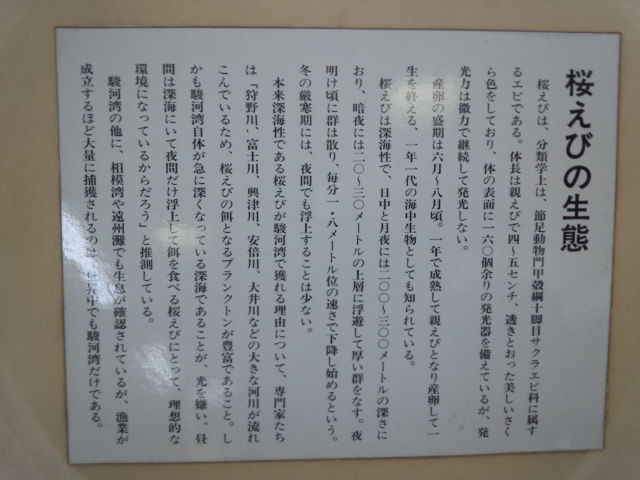 桜えびの生態
桜えびは、分類学上は、節足動物門甲殻綱十脚目サクラエビ科に属す
るエビである。体長は親えびで四〜五センチ、透きとおった美しいさく
ら色をしており、体の表面に一六〇個余りの発光器を備えているが、発
光力は微力で継続して発光しない。
産卵の盛期は六月〜八月頃。一年で成熟して親えびとなり産卵して一
生を終える、一年一代の海中生物としても知られている。
桜えびは深海性で、日中と月夜には二〇〇〜三〇〇メートルの深さに
おり、暗夜には二〇〜三〇メートルの上層に浮遊して厚い群をなす。夜
明け頃に群は散り、毎分一・八メートル位の速さで下降し始めるという。
冬の厳寒期には、夜間でも浮上することは少ない。
本来深海性である桜えびが駿河湾で獲れる理由について、専門家たち
は「狩野川、富士川、興津川、安倍川、大井川などの大きな河川が流れ
こんでいるため、桜えびの餌となるプランクトンが豊富であること。し
かも駿河湾自体が急に深くなっている深海であることが、光を嫌い、昼
間は深海にいて夜間だけ浮上して餌を食べる桜えびにとって、理想的な
環境になっているからだろう」と推測している。
駿河湾の他に、相模湾や遠州灘でも生息が確認されているが、漁業が
成立するほど大量に捕獲されるのは、世界中でも駿河湾だけである。